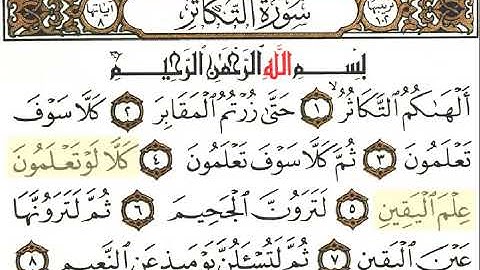 ترتيبها ١٠٢ سورة التكاثر آياتها ٨
بِسْمِ ٱللَّهِ ٱلرَّحْمَٰنِ ٱلرَّحِيمِ
أَلْهَىٰكُمُ ٱلتَّكَاثُرُ ١ حَتَّىٰ زُرْتُمُ ٱلْمَقَابِرَ ٢ كَلَّا سَوْفَ
تَعْلَمُونَ ٣ ثُمَّ كَلَّا سَوْفَ تَعْلَمُونَ ٤ كَلَّا لَوْ تَعْلَمُونَ
عِلْمَ ٱلْيَقِينِ ٥ لَتَرَوُنَّ ٱلْجَحِيمَ ٦ ثُمَّ لَتَرَوُنَّهَا
عَيْنَ ٱلْيَقِينِ ٧ ثُمَّ لَتُسْـَٔلُنَّ يَوْمَئِذٍ عَنِ ٱلنَّعِيمِ ٨